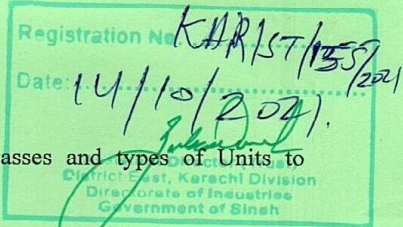 Registration No
Date: 14/10/2021.
asses and types of Units to
District East, Karachi Division
Directorate of Industries
Government of Sindh